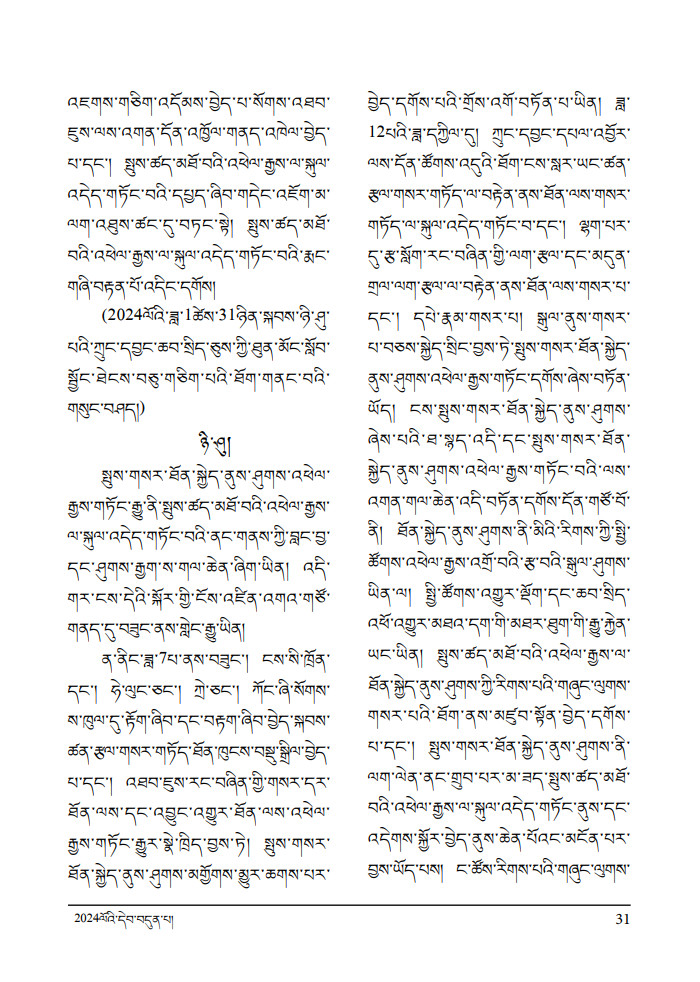 འཛུགས་གཅིག་འདོམས་བྱེད་པ་སོགས་འཐབ་
ཇུས་ལས་འགན་དོན་འཁྱོལ་གནད་འཁེལ་བྱེད་
པ་དང་། སྤུས་ཚད་མཐོ་བའི་འཕེལ་རྒྱས་ལ་སྐུལ་
འདེད་གཏོང་བའི་དཔྱད་ཞིབ་གདེང་འཇོག་མ་
ལག་འཐུས་ཚང་དུ་བཏང་སྟེ། སྤུས་ཚད་མཐོ་
བའི་འཕེལ་རྒྱས་ལ་སྐུལ་འདེད་གཏོང་བའི་རྨང་
གཞི་བརྟན་པོ་འདིང་དགོས།
(2024ལོའི་ཟླ་1ཚེས་31ཉིན་སྐབས་ཉི་ཤུ་
པའི་ཀྲུང་དབྱང་ཆབ་སྲིད་ཅུས་ཀྱི་ཐུན་མོང་སློབ་
སྦྱོང་ཐེངས་བཅུ་གཅིག་པའི་ཐོག་གནང་བའི་
གསུང་བཤད།)
ཉི་ཤུ།
སྤུས་གསར་ཐོན་སྐྱེད་ནུས་ཤུགས་འཕེལ་
རྒྱས་གཏོང་རྒྱུ་ནི་སྤུས་ཚད་མཐོ་བའི་འཕེལ་རྒྱས་
ལ་སྐུལ་འདེད་གཏོང་བའི་ནང་གནས་ཀྱི་བླང་བྱ་
དང་ཤུགས་རྒྱག་ས་གལ་ཆེན་ཞིག་ཡིན། འདི་
གར་ངས་དེའི་སྐོར་གྱི་ངོས་འཛིན་འགའ་གཙོ་
གནད་དུ་བཟུང་ནས་གླེང་རྒྱུ་ཡིན།
ན་ནིང་ཟླ་7པ་ནས་བཟུང་། ངས་སི་ཁྲོན་
དང་། ཧེ་ལུང་ཅང་། ཀྲེ་ཅང་། ཀོང་ཞི་སོགས་
ས་ཁུལ་དུ་རྟོག་ཞིབ་དང་བརྟག་ཞིབ་བྱེད་སྐབས་
ཚན་རྩལ་གསར་གཏོད་ཐོན་ཁུངས་བསྡུ་སྒྲིལ་བྱེད་
པ་དང་། འཐབ་ཇུས་རང་བཞིན་གྱི་གསར་དར་
ཐོན་ལས་དང་འབྱུང་འགྱུར་ཐོན་ལས་འཕེལ་
རྒྱས་གཏོང་རྒྱུར་སྣེ་ཁྲིད་བྱས་ཏེ། སྤུས་གསར་
ཐོན་སྐྱེད་ནུས་ཤུགས་མགྱོགས་མྱུར་ཆགས་པར་
བྱེད་དགོས་པའི་གྲོས་འགོ་བཏོན་པ་ཡིན། ཟླ་
12པའི་ཟླ་དཀྱིལ་དུ། ཀྲུང་དབྱང་དཔལ་འབྱོར་
ལས་དོན་ཚོགས་འདུའི་ཐོག་ངས་སླར་ཡང་ཚན་
རྩལ་གསར་གཏོད་ལ་བརྟེན་ནས་ཐོན་ལས་གསར་
གཏོད་ལ་སྐུལ་འདེད་གཏོང་བ་དང་། ལྷག་པར་
དུ་རྩ་སློག་རང་བཞིན་གྱི་ལག་རྩལ་དང་མདུན་
གྲལ་ལག་རྩལ་ལ་བརྟེན་ནས་ཐོན་ལས་གསར་པ་
དང་། དཔེ་རྣམ་གསར་པ། སྒུལ་ནུས་གསར་
པ་བཅས་སྐྱེད་སྲིང་བྱས་ཏེ་སྤུས་གསར་ཐོན་སྐྱེད་
ནུས་ཤུགས་འཕེལ་རྒྱས་གཏོང་དགོས་ཞེས་བཏོན་
ཡོད། ངས་སྤུས་གསར་ཐོན་སྐྱེད་ནུས་ཤུགས་
ཞེས་པའི་ཐ་སྙད་འདི་དང་སྤུས་གསར་ཐོན་
སྐྱེད་ནུས་ཤུགས་འཕེལ་རྒྱས་གཏོང་བའི་ལས་
འགན་གལ་ཆེན་འདི་བཏོན་དགོས་དོན་གཙོ་བོ་
ནི། ཐོན་སྐྱེད་ནུས་ཤུགས་ནི་མིའི་རིགས་ཀྱི་སྤྱི་
ཚོགས་འཕེལ་རྒྱས་འགྲོ་བའི་རྩ་བའི་སྐུལ་ཤུགས་
ཡིན་ལ། སྤྱི་ཚོགས་འགྱུར་ལྡོག་དང་ཆབ་སྲིད་
འཕོ་འགྱུར་མཐའ་དག་གི་མཐར་ཐུག་གི་རྒྱུ་རྐྱེན་
ཡང་ཡིན། སྤུས་ཚད་མཐོ་བའི་འཕེལ་རྒྱས་ལ་
ཐོན་སྐྱེད་ནུས་ཤུགས་ཀྱི་རིགས་པའི་གཞུང་ལུགས་
གསར་པའི་ཐོག་ནས་མཛུབ་སྟོན་བྱེད་དགོས་
པ་དང་། སྤུས་གསར་ཐོན་སྐྱེད་ནུས་ཤུགས་ནི་
ལག་ལེན་ནང་གྲུབ་པར་མ་ཟད་སྤུས་ཚད་མཐོ་
བའི་འཕེལ་རྒྱས་ལ་སྐུལ་འདེད་གཏོང་ནུས་དང་
འདེགས་སྐྱོར་བྱེད་ནུས་ཆེན་པོའང་མངོན་པར་
བྱས་ཡོད་པས། ང་ཚོས་རིགས་པའི་གཞུང་ལུགས་
2024ལོའི་དེབ་བདུན་པ།
31